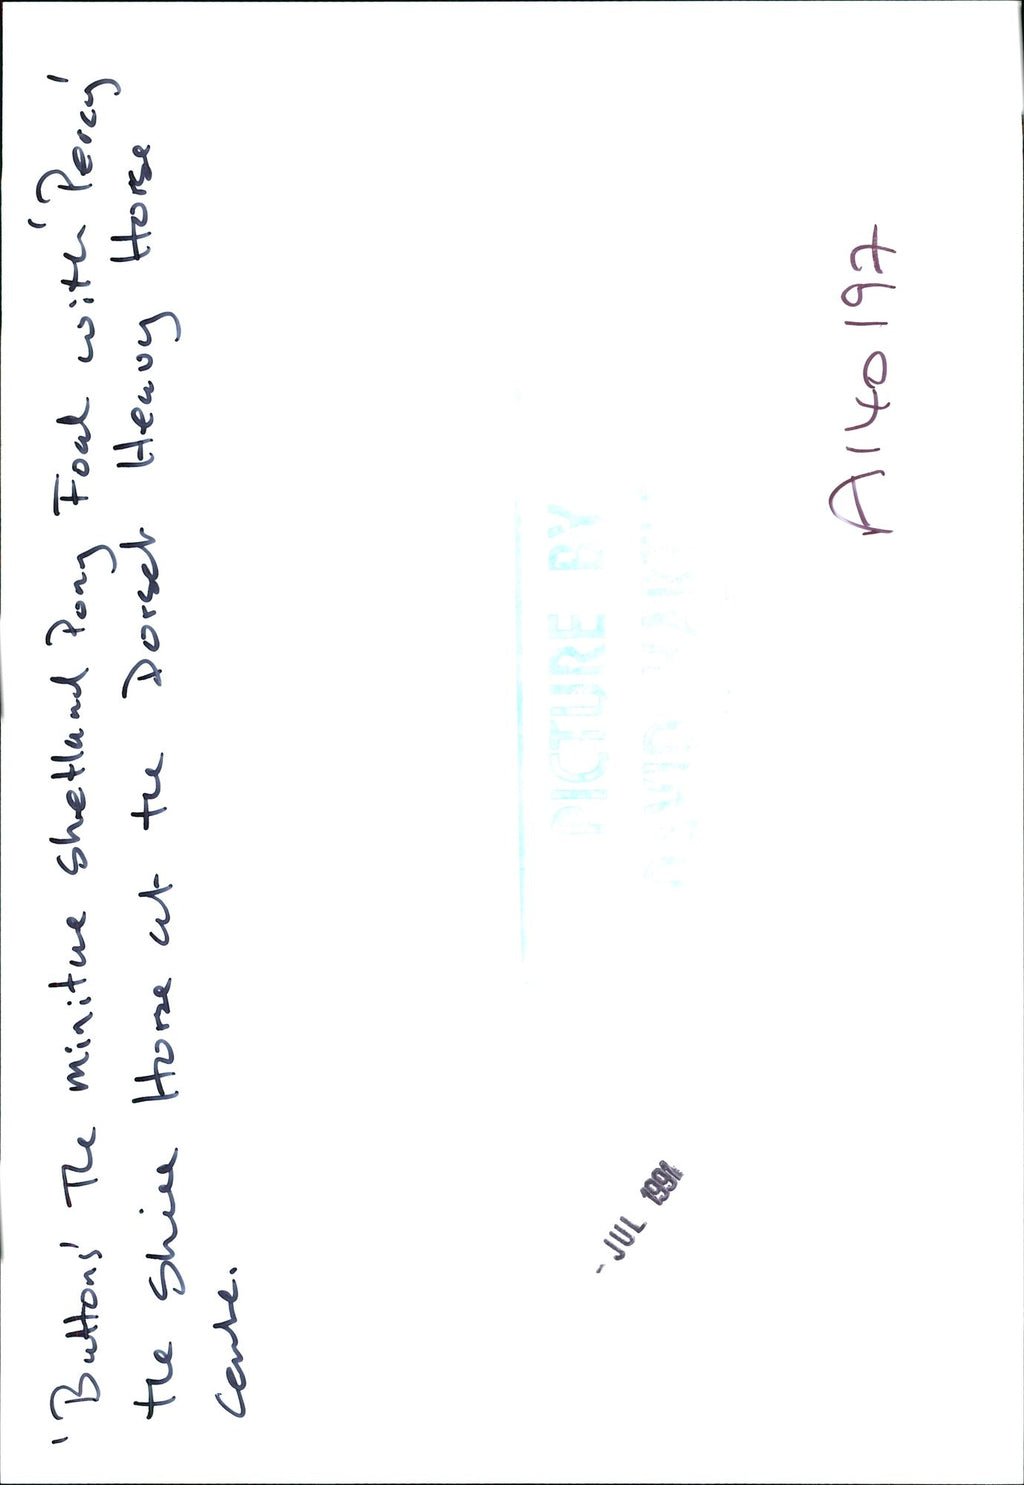 'Buttons' The miniture Shetland Pony Foal with 'Percy'
the Shire Horse at the Dorset Heavy Horse
Centre.
PICTURE BY
DAVID
- JUL 1991
A140197